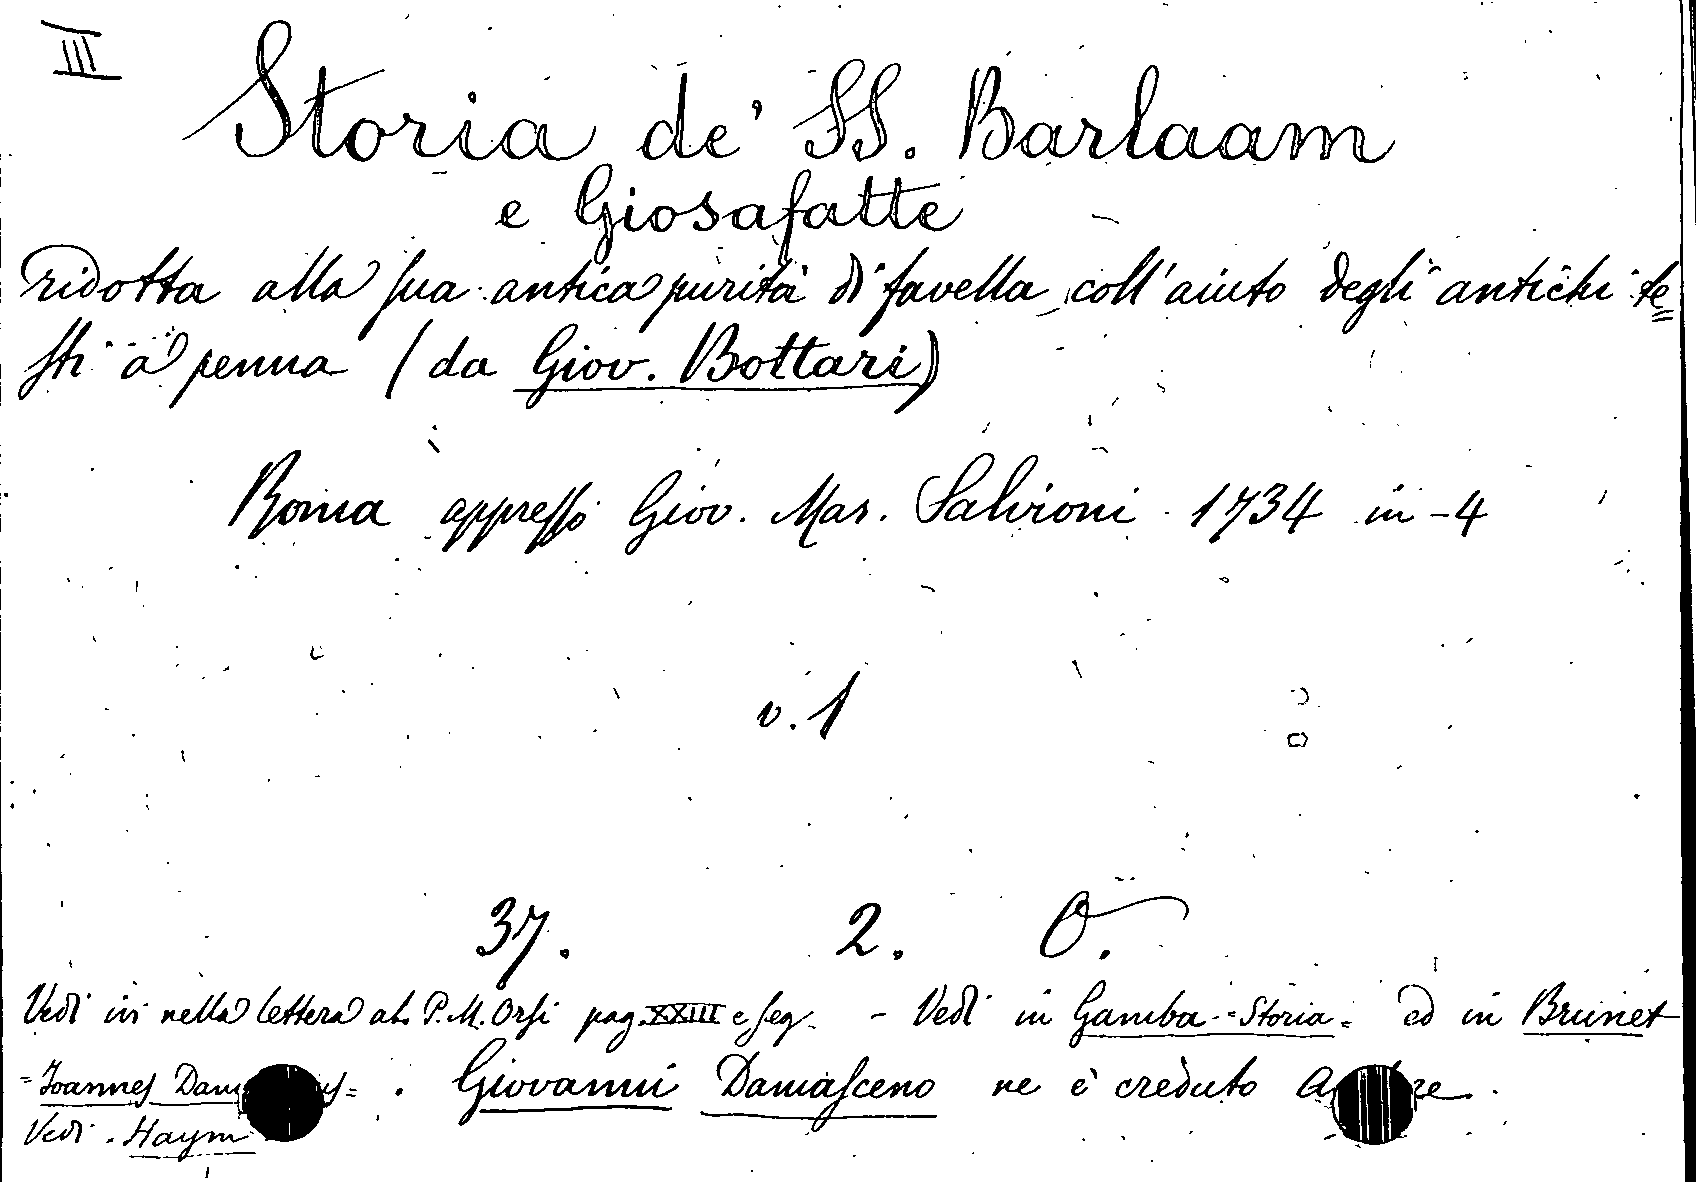 III
Storia de' SS. Barlaam
e Giosafatte
ridotta alla sua antica purità di favella, coll'aiuto degli antichi te=
sti a penna (da Giov. Bottari)
Roma appresso Giov. Mar. Salvioni 1734 in-4
v. 1
37. 2. O.
Vedi ivi nella lettera al P. M. Orsi pag. XXIII e seg. - Vedi in Gamba =Storia= ed in Brunet
=Joannes = . Giovanni Damasceno ne è creduto
Vedi Haym